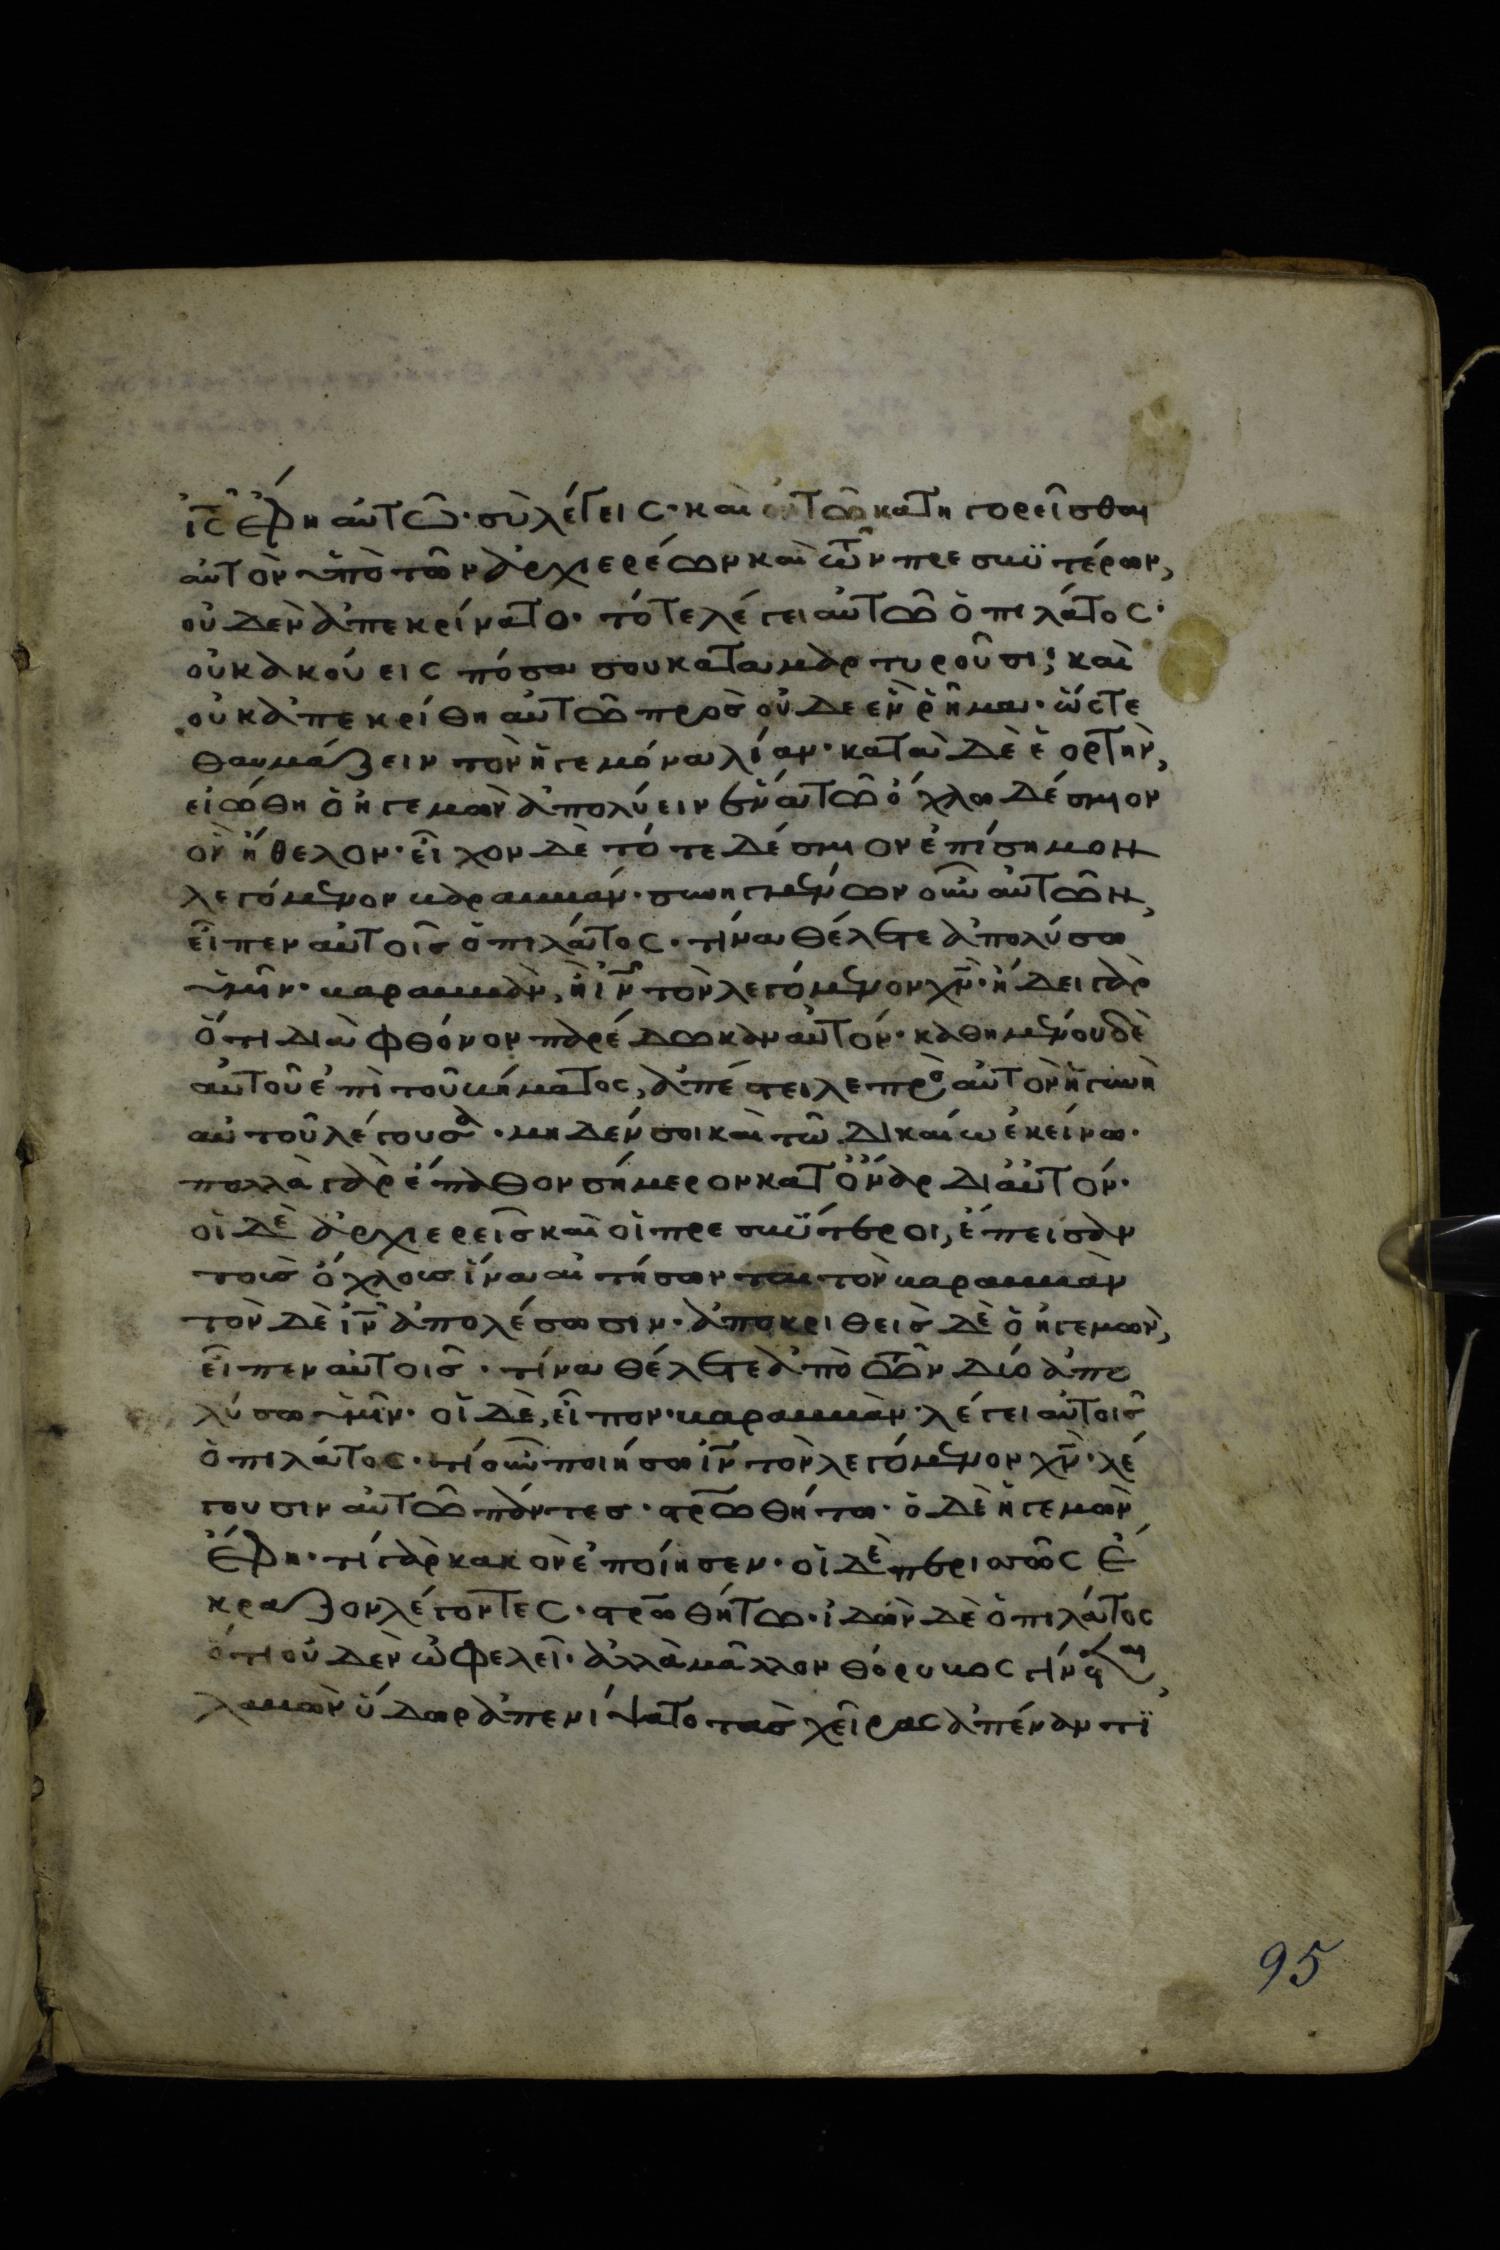 ι̅ς̅ ἔφη αὐτῶ· σὺ λέγεις· καὶ ἐν τῶ κατηγορεῖσθαι
αὐτὸν ὑπὸ τῶν ἀρχιερέων καὶ τῶν πρεσβϋτέρων,
οὐδὲν ἀπεκρίνατο· τότε λέγει αὐτῶ ὁ πιλάτος·
οὐκ ἀκούεις πόσα σου καταμαρτυροῦσι; καὶ
οὐκ ἀπεκρίθη αὐτῶ πρὸς οὐδὲ ἐν ῥῆμα· ὥστε
θαυμάζειν τὸν ἡγεμόνα λίαν· κατὰ δὲ ἑορτὴν,
εἰώθη ὁ ἡγεμὼν ἀπολύειν ἕνα τῶ ὄχλω δέσμιον
ὃν ἤθελον· εἶχον δὲ τότε δέσμιον ἐπίσημον
λεγόμενον βαραββάν· συνηγμένων οὖν αὐτῶν,
εἶπεν αὐτοῖς ὁ πιλάτος· τίνα θέλετε ἀπολύσω
ὑμῖν· βαραββὰν, ἢ ι̅ν̅ τὸν λεγόμενον χ̅ν̅· ἤδει γὰρ
ὅτι διὰ φθόνον παρέδωκαν αὐτόν· καθημένου δὲ
αὐτοῦ ἐπὶ τοῦ βήματος, ἀπέστειλε πρὸς αὐτὸν ἡ γυνὴ
αὐτοῦ λέγουσα· μηδέν σοι καὶ τῶ δικαίω ἐκείνω·
πολλὰ γὰρ ἔπαθον σήμερον κατ ὄναρ δι αὐτόν·
οἱ δὲ ἀρχιερεῖς καὶ οἱ πρεσβϋτεροι, ἔπεισαν
τοὺς ὄχλους ἵνα αἰτήσωνται τὸν βαραββὰν
τὸν δὲ ι̅ν̅ ἀπολέσωσιν· ἀποκριθεὶς δὲ ὁ ἡγεμὼν,
εἶπεν αὐτοῖς· τίνα θέλετε ἀπὸ τῶν δύο ἀπο
λύσω ὑμῖν· οἱ δὲ, εἶπον· βαραββὰν· λέγει αὐτοῖς
ὁ πιλάτος· τί οὖν ποιήσω ι̅ν̅ τὸν λεγόμενον χ̅ν̅· λέ
γουσιν αὐτῶ πάντες· στ̅ρωθήτω· ὁ δὲ ἡγεμὼν
ἔφη· τί γὰρ κακὸν ἐποίησεν· οἱ δὲ περισσῶς ἔ
κραζον λέγοντες· στ̅ρωθήτω· ἰδὼν δὲ ὁ πιλάτος
ὅτι οὐδὲν ὠφελεῖ· ἀλλὰ μᾶλλον θόρυβος γίνεται,
λαβὼν ὕδωρ ἀπενίψατο τὰς χεῖρας ἀπέναντϊ
95